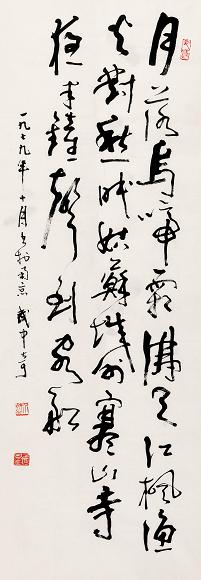 月落烏啼霜滿天江楓漁
火對愁眠姑蘇城外寒山寺
夜半鐘聲到客船
一九七九年十月书於南京 武中奇